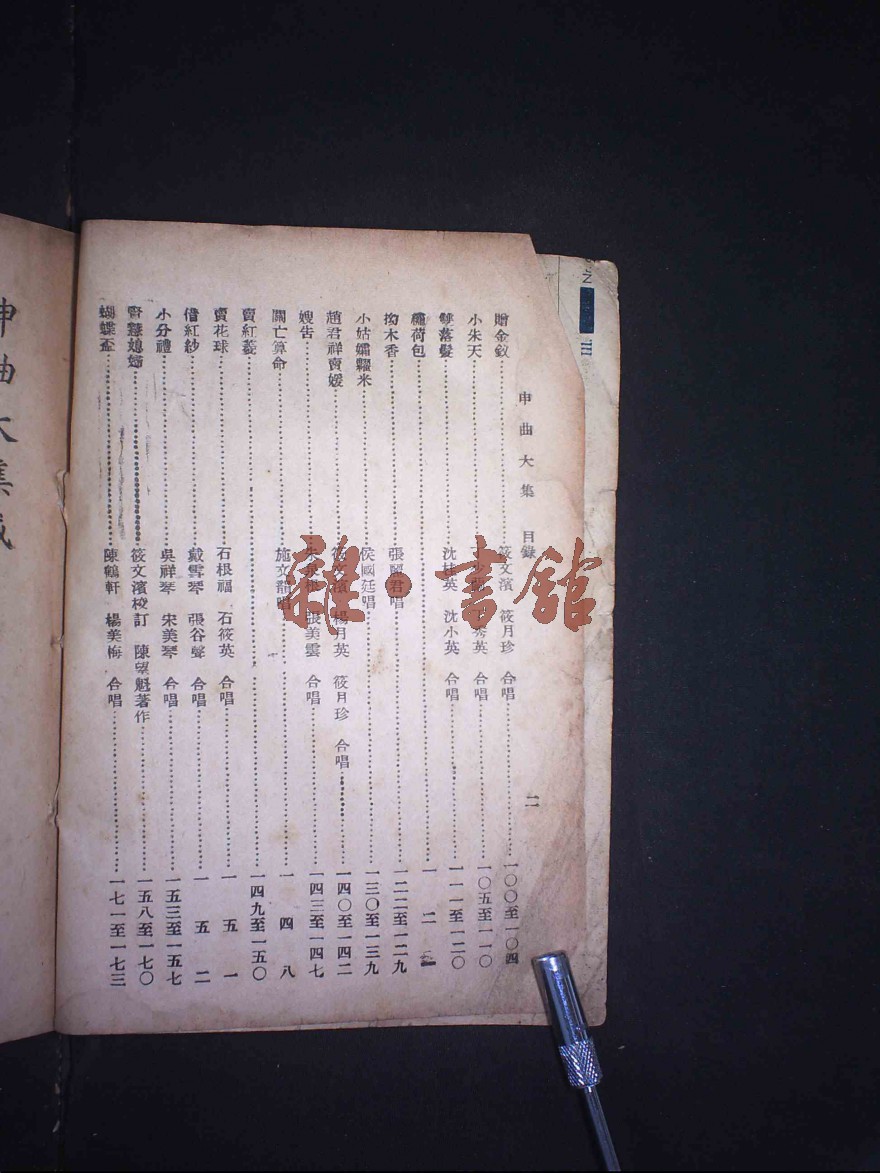 申曲大集 目錄 二
贈金釵 筱文濱 筱月珍 合唱 一〇〇至一〇四
小朱天 秀英 合唱 一〇五至一一〇
雙落髮 沈桂英 沈小英 合唱 一一一至一二〇
繡荷包 一二
拗木香 張麗君唱 一二二至一二九
小姑孀糶米 侯國廷唱 一三〇至一三九
趙君祥賣媛 筱文濱 楊月英 筱月珍 合唱 一四〇至一四二
嫂告 張美雲 合唱 一四三至一四七
關亡算命 施文韻唱 一四八
賣紅菱 一四九至一五〇
賣花球 石根福 石筱英 合唱 一五一
借紅紗 戴雪琴 張谷聲 合唱 一五二
小分禮 吳祥琴 宋美琴 合唱 一五三至一五七
賢慧媳婦 筱文濱校訂 陳望魁著作 一五八至一七〇
蝴蝶盃 陳鶴軒 楊美梅 合唱 一七一至一七三
申曲大集成
雜·書館